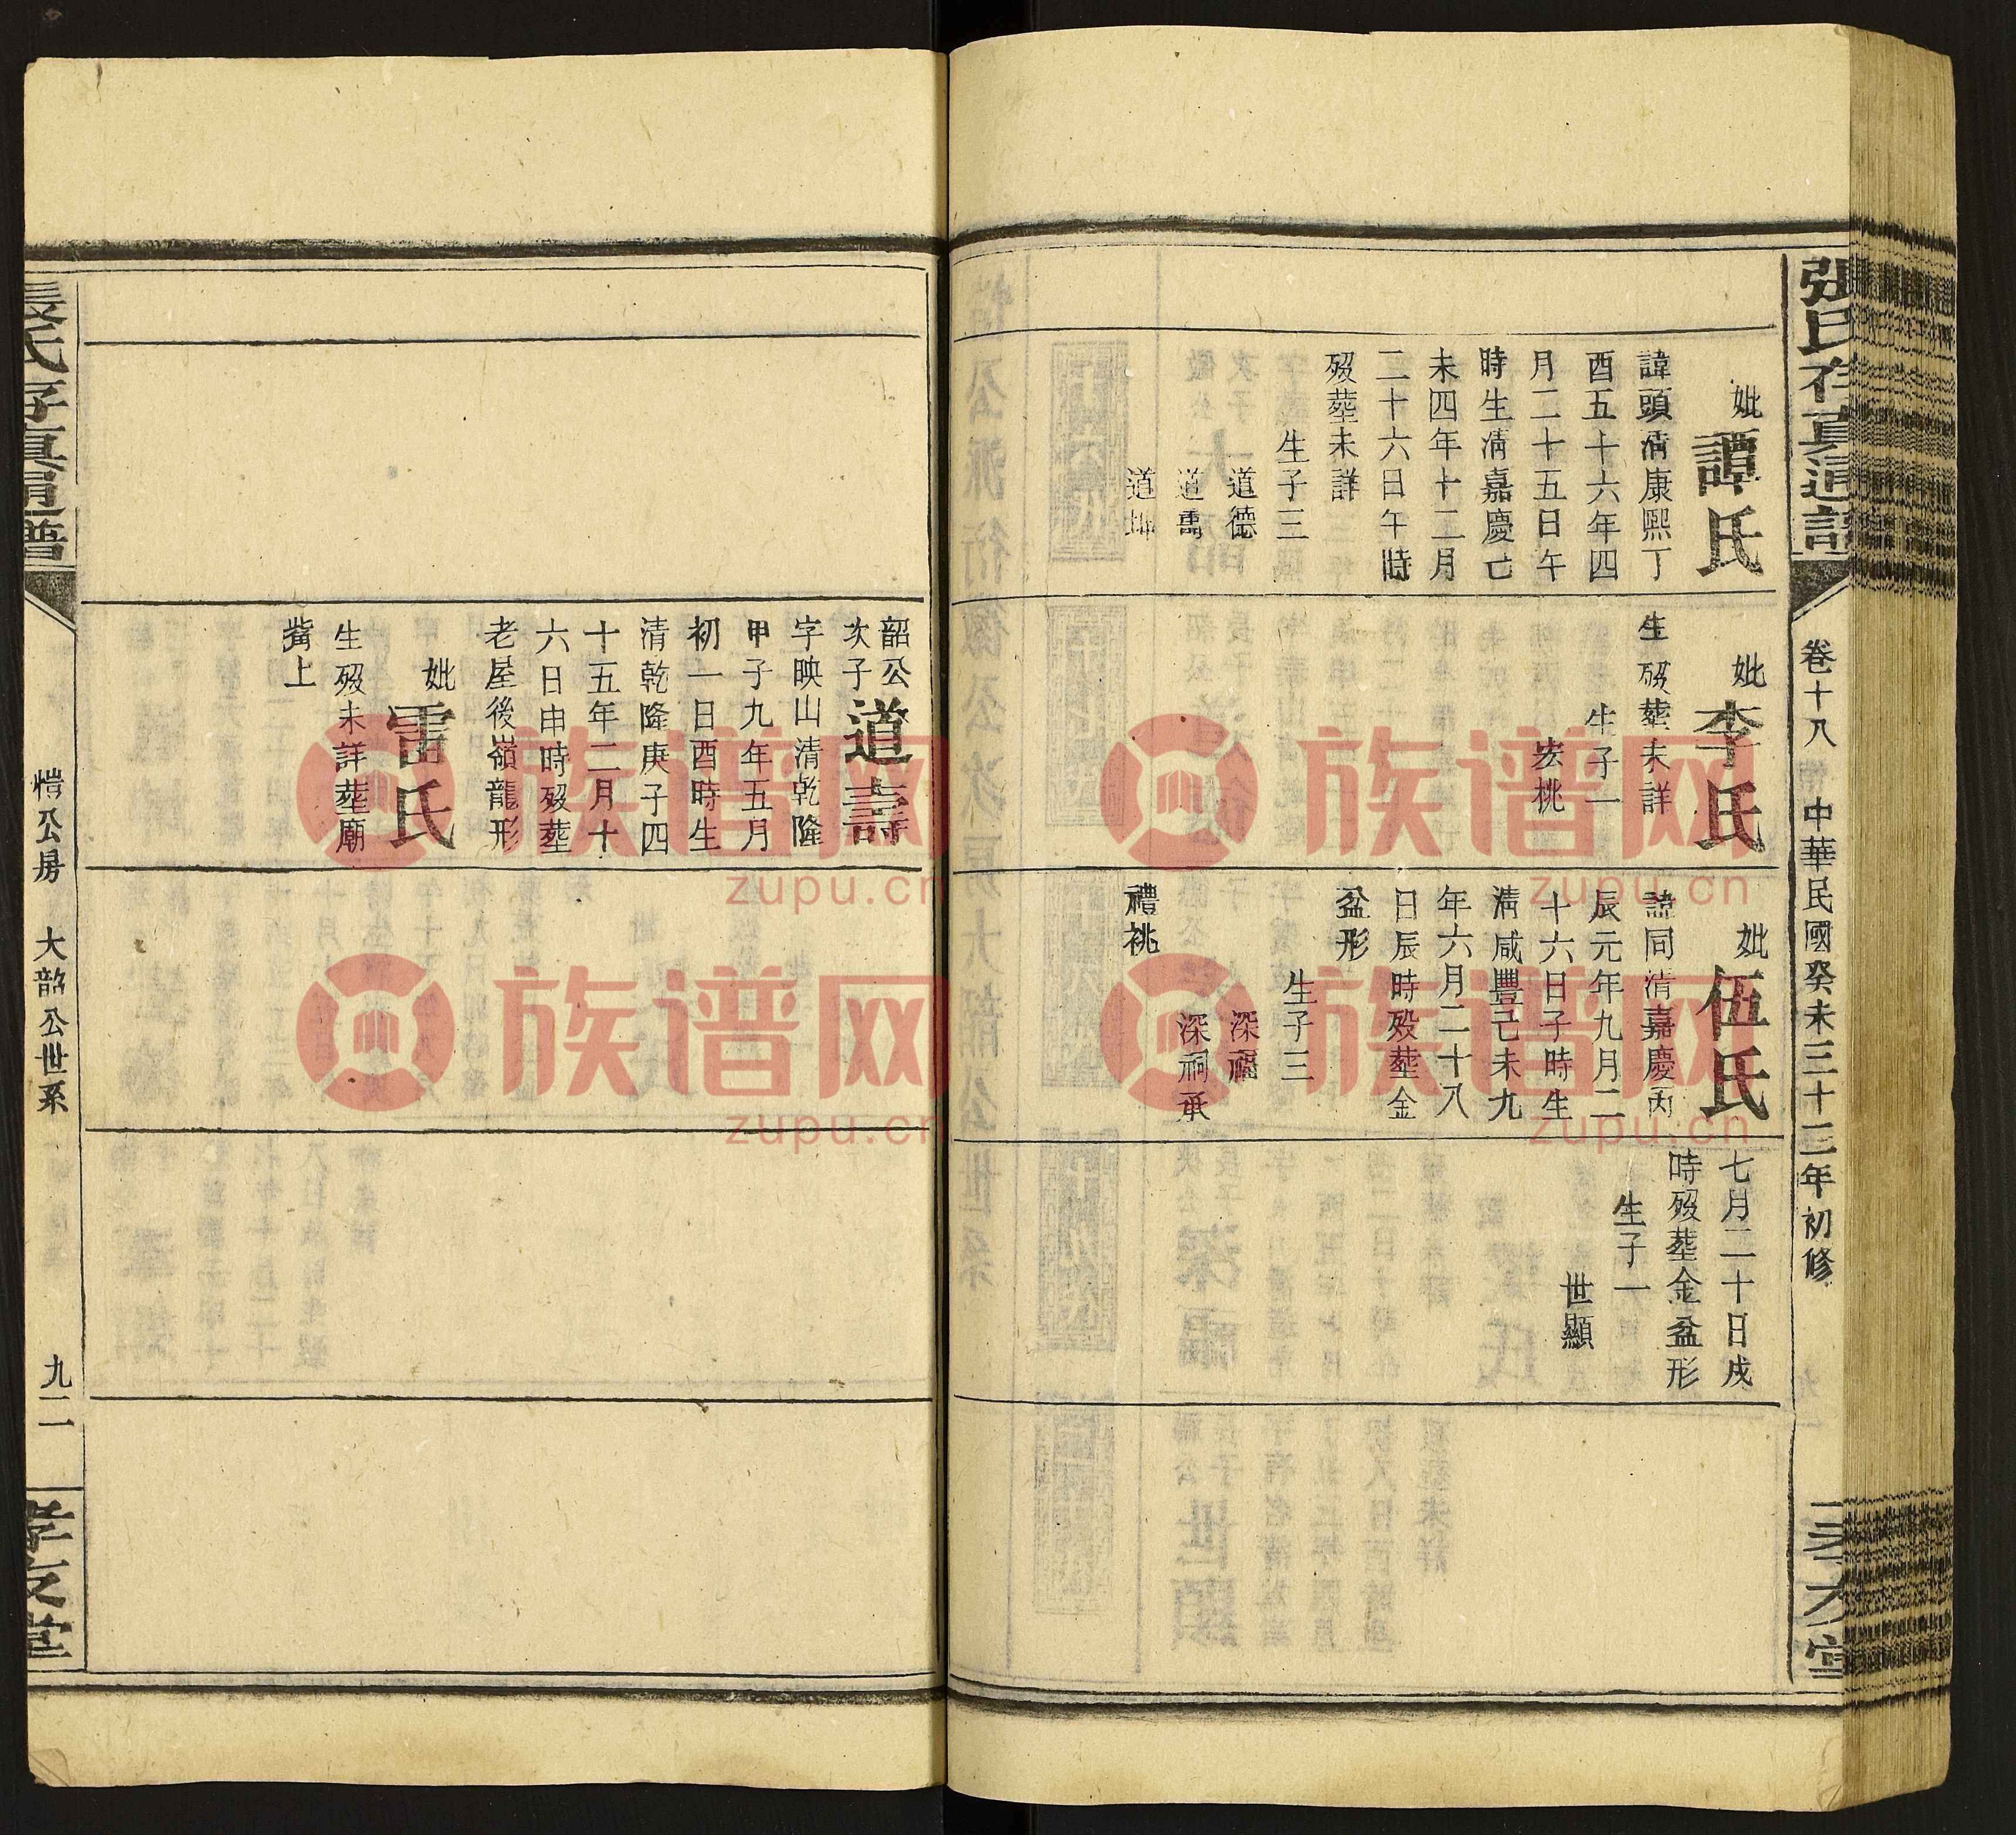 張氏存真通譜
卷十八
中華民國癸未三十二年初修
妣
譚氏
諱頭清康熙丁
酉五十六年四
月二十五日午
時生清嘉慶己
未四年十二月
二十六日午時
歿塟未詳
生子三
道德
道禹
道坤
妣
李氏
生歿塟未詳
生子一
宏桃
妣
伍氏
諱同清嘉慶丙
辰元年九月二
十六日子時生
清咸豐己未九
年六月二十八
日辰時歿塟金
盆形
生子三
深福
深祠承
禮祧
七月二十日戌
時歿塟金盆形
生子一
世顯
韶公
次子
道壽
字映山清乾隆
甲子九年五月
初一日酉時生
清乾隆庚子四
十五年二月十
六日申時歿塟
老屋後嶺龍形
妣
雷氏
生歿未詳塟廟
背上
張氏存真通譜
愷公房
大韶公世系
九二
孝友堂
族谱网
zupu.cn
族谱网
zupu.cn
族谱网
zupu.cn
族谱网
zupu.cn